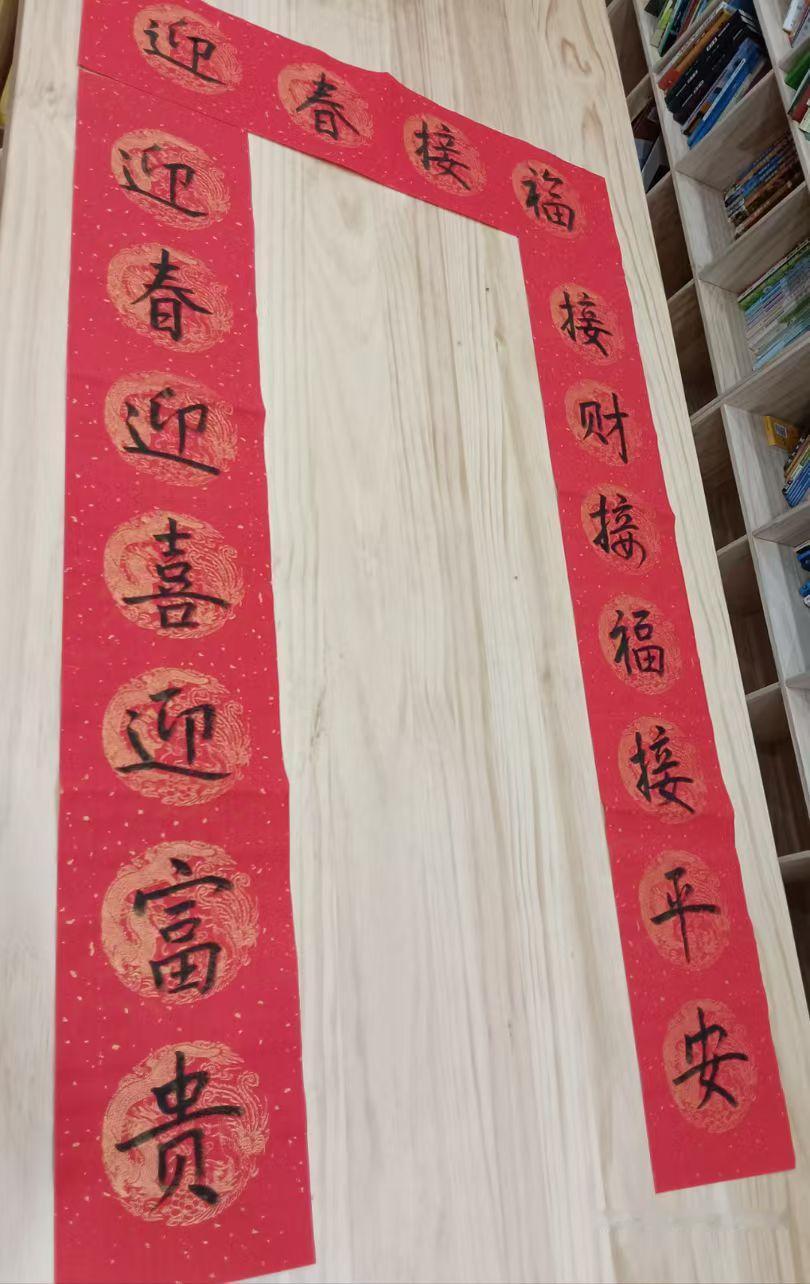 迎春接福
迎春迎喜迎富贵
接财接福接平安